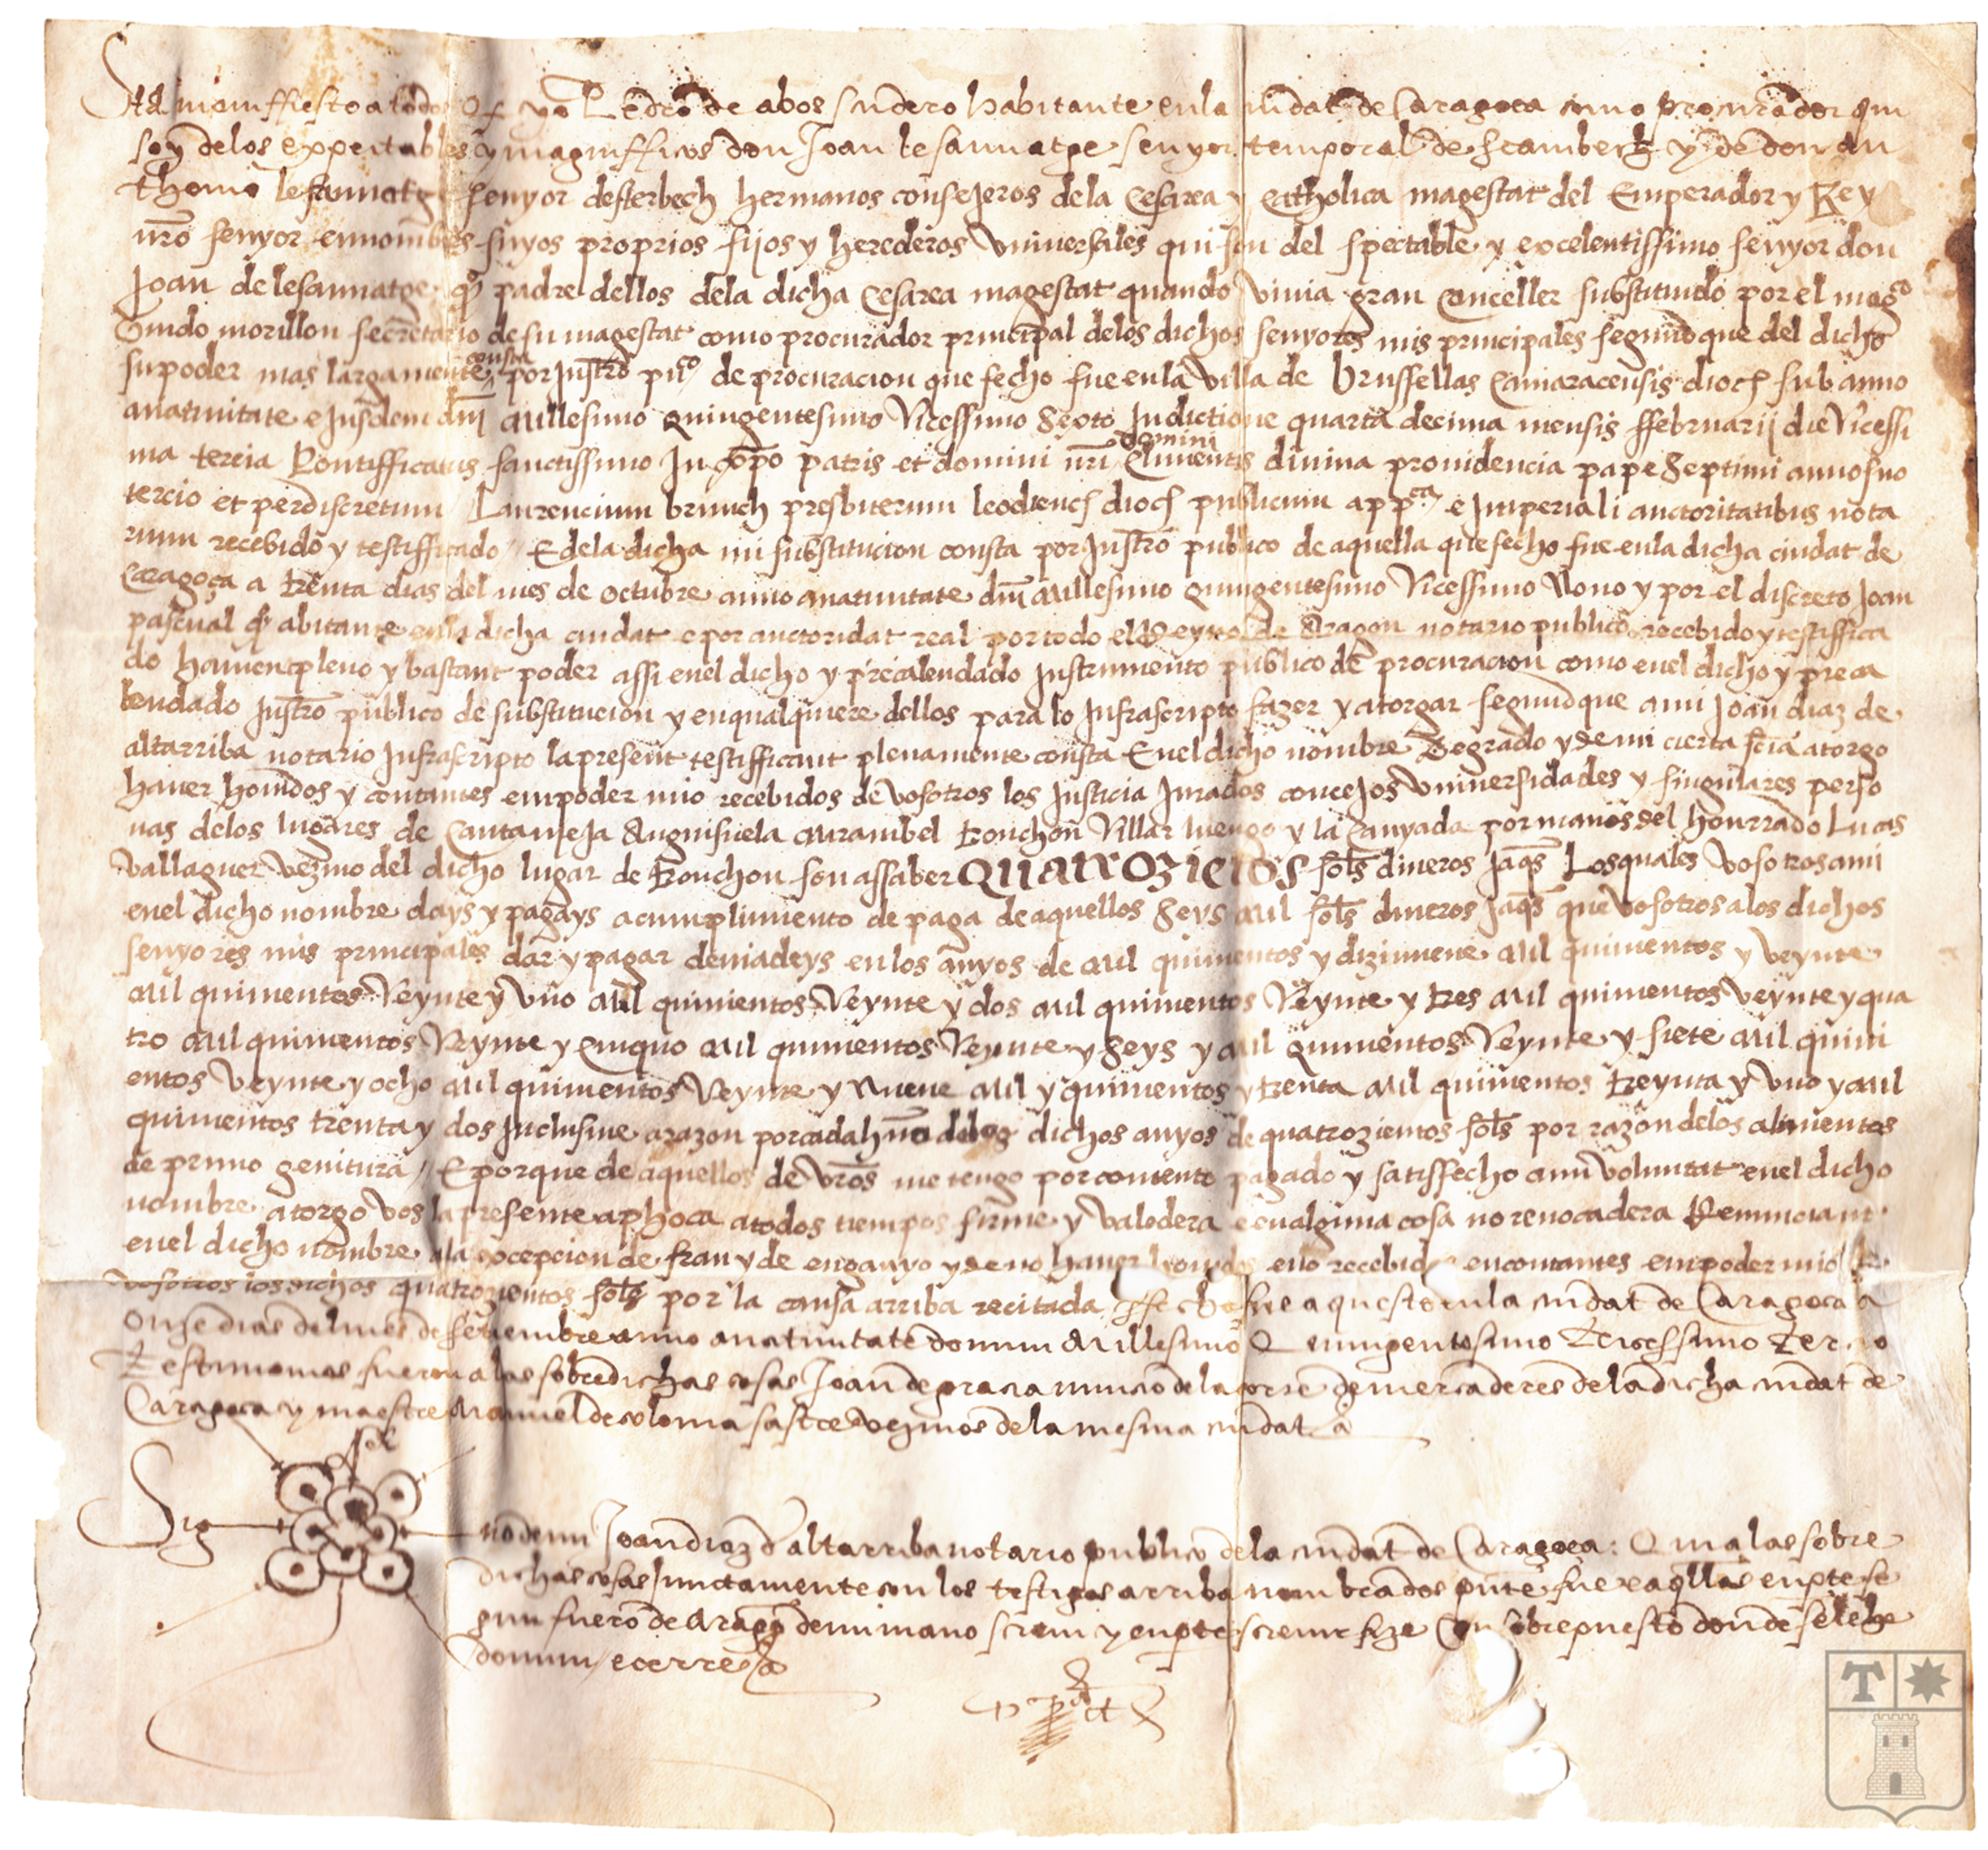 Sia manifiesto a todos q̃ yo Pedro de abos scudero habitante en la ciudat de Caragoca como procurador qui
soy delos expectables y magnifficos don Joan le sauuatge senyor temporal de scambeck y de don An
thonio le sauuatge senyor desterbech hermanos consejeros dela Cesarea y catholica magestat del Emperador y Rey
nr̃o senyor en nombres suyos proprios fijos y herederos vniuersales qui son del spectable y excelentissimo senyor don
Joan de lesauuatge q̃º padre dellos dela dicha Cesarea magestat quando viuia gran canceller substituido por el magco
Guido morillon secretario de su magestat como procurador principal delos dichos senyores mis principales segund que del dicho
su poder mas largamente consta por Justr̃o puco de procuracion que fecho fue en la villa de brussellas Camaracensis dioc̃ sub anno
anatiuitate eJusdem dñi Millesimo quingentesimo vicessimo sexto Indictione quarta decima mensis ffebruarij die vicessi
ma tercia Pontifficatus sanctissimo In xp̃o patris et domini nr̃i domini Clementis diuina prouidencia pape septimi anno suo
tercio et per discretum Laurencium brunch presbiterum leodienc̃ dioc̃ publicum appca e Imperiali auctoritatibus nota
rium recebido y testifficado E dela dicha mi substitucion consta por Justr̃o publico de aquella que fecho fue en la dicha ciudat de
Caragoça a trenta dias del mes de octubre anno anatiuitate dñi Millesimo quingentesimo vicessimo Nono y por el discreto Joan
pascual q̃º abitante en la dicha ciudat e por auctoridat real por todo el Reyno de Aragon notario publico recebido y testiffica
do hauient pleno y bastant poder assi en el dicho y precalendado Instrumento publico de procuracion como en el dicho y preca
lendado Justr̃o publico de substitucion y en qualquiere dellos para lo Infrascripto fazer y atorgar segund que a mi Joan diaz de
altarriba notario Infrascripto la present testifficant plenamente consta En el dicho nombre De grado y de mi cierta sc̃ia atorgo
hauer houidos y contantes en poder mio recebidos de vosotros los Justicia Jurados concejos vniuersidades y singulares perso
nas delos lugares de Cantauieja Anguisuela Mirambel tronchon Villar luengo y la Canyada por manos del honrrado Lucas
vallaguer vezino del dicho lugar de tronchon son assaber Quatrozientos sol̃s dineros Jaq̃s Los quales vosotros a mi
en el dicho nombre days y pagays a cumplimiento de paga de aquellos seys mil sol̃s dineros Jaq̃s que vosotros a los dichos
senyores mis principales dar y pagar deuiadeys en los anyos de Mil quinientos y dizinueue Mil quinientos y veynte
Mil quinientos veynte y vno Mil quinientos veynte y dos Mil quinientos veynte y tres Mil quinientos veynte y qua
tro Mil quinientos veynte y cinquo Mil quinientos veynte y seys y Mil quinientos veynte y siete Mil quini
entos veynte y ocho Mil quinientos veynte y Nueue Mil y quinientos y trenta Mil quinientos treynta y vno y Mil
quinientos trenta y dos Inclusiue a razon por cada huno delos dichos anyos de quatrozientos sol̃s por razon delos alimentos
de primo genitura E porque de aquellos de vr̃os me tengo por contento pagado y satisfecho a mi voluntat en el dicho
nombre atorgo vos la presente aphoca a todos tiempos firme y valedera e en alguna cosa no reuocadera Renunciant
en el dicho nombre ala excepcion de frau y de enganyo y de no hauer houido e no recebido en contantes en poder mio de
vosotros los dichos quatrozientos sol̃s por la causa arriba recitada fecho fue aquesto en la ciudat de Caragoca a
onze dias del mes de setiembre anno anatiuitate domini Millesimo Quingentesimo Tricessimo Tercio
Testimonios fueron alas sobredichas cosas Joan de gracia nuncio dela corte de mercaderes dela dicha ciudat de
Caragoca y maestre Manuel de coloma sastre vezinos dela mesma ciudat
Sig no de mi Joan diaz d altarriba notario publico dela ciudat de Caragoca: Qui alas sobre
dichas cosas Juntamente con los testigos arriba nombrados pñte fue e aq̃llas en pte se
gun fuero de Aragõ de mi mano screui y en pte screuir fize Con sobrepuesto donde se lehe
domini e cerre